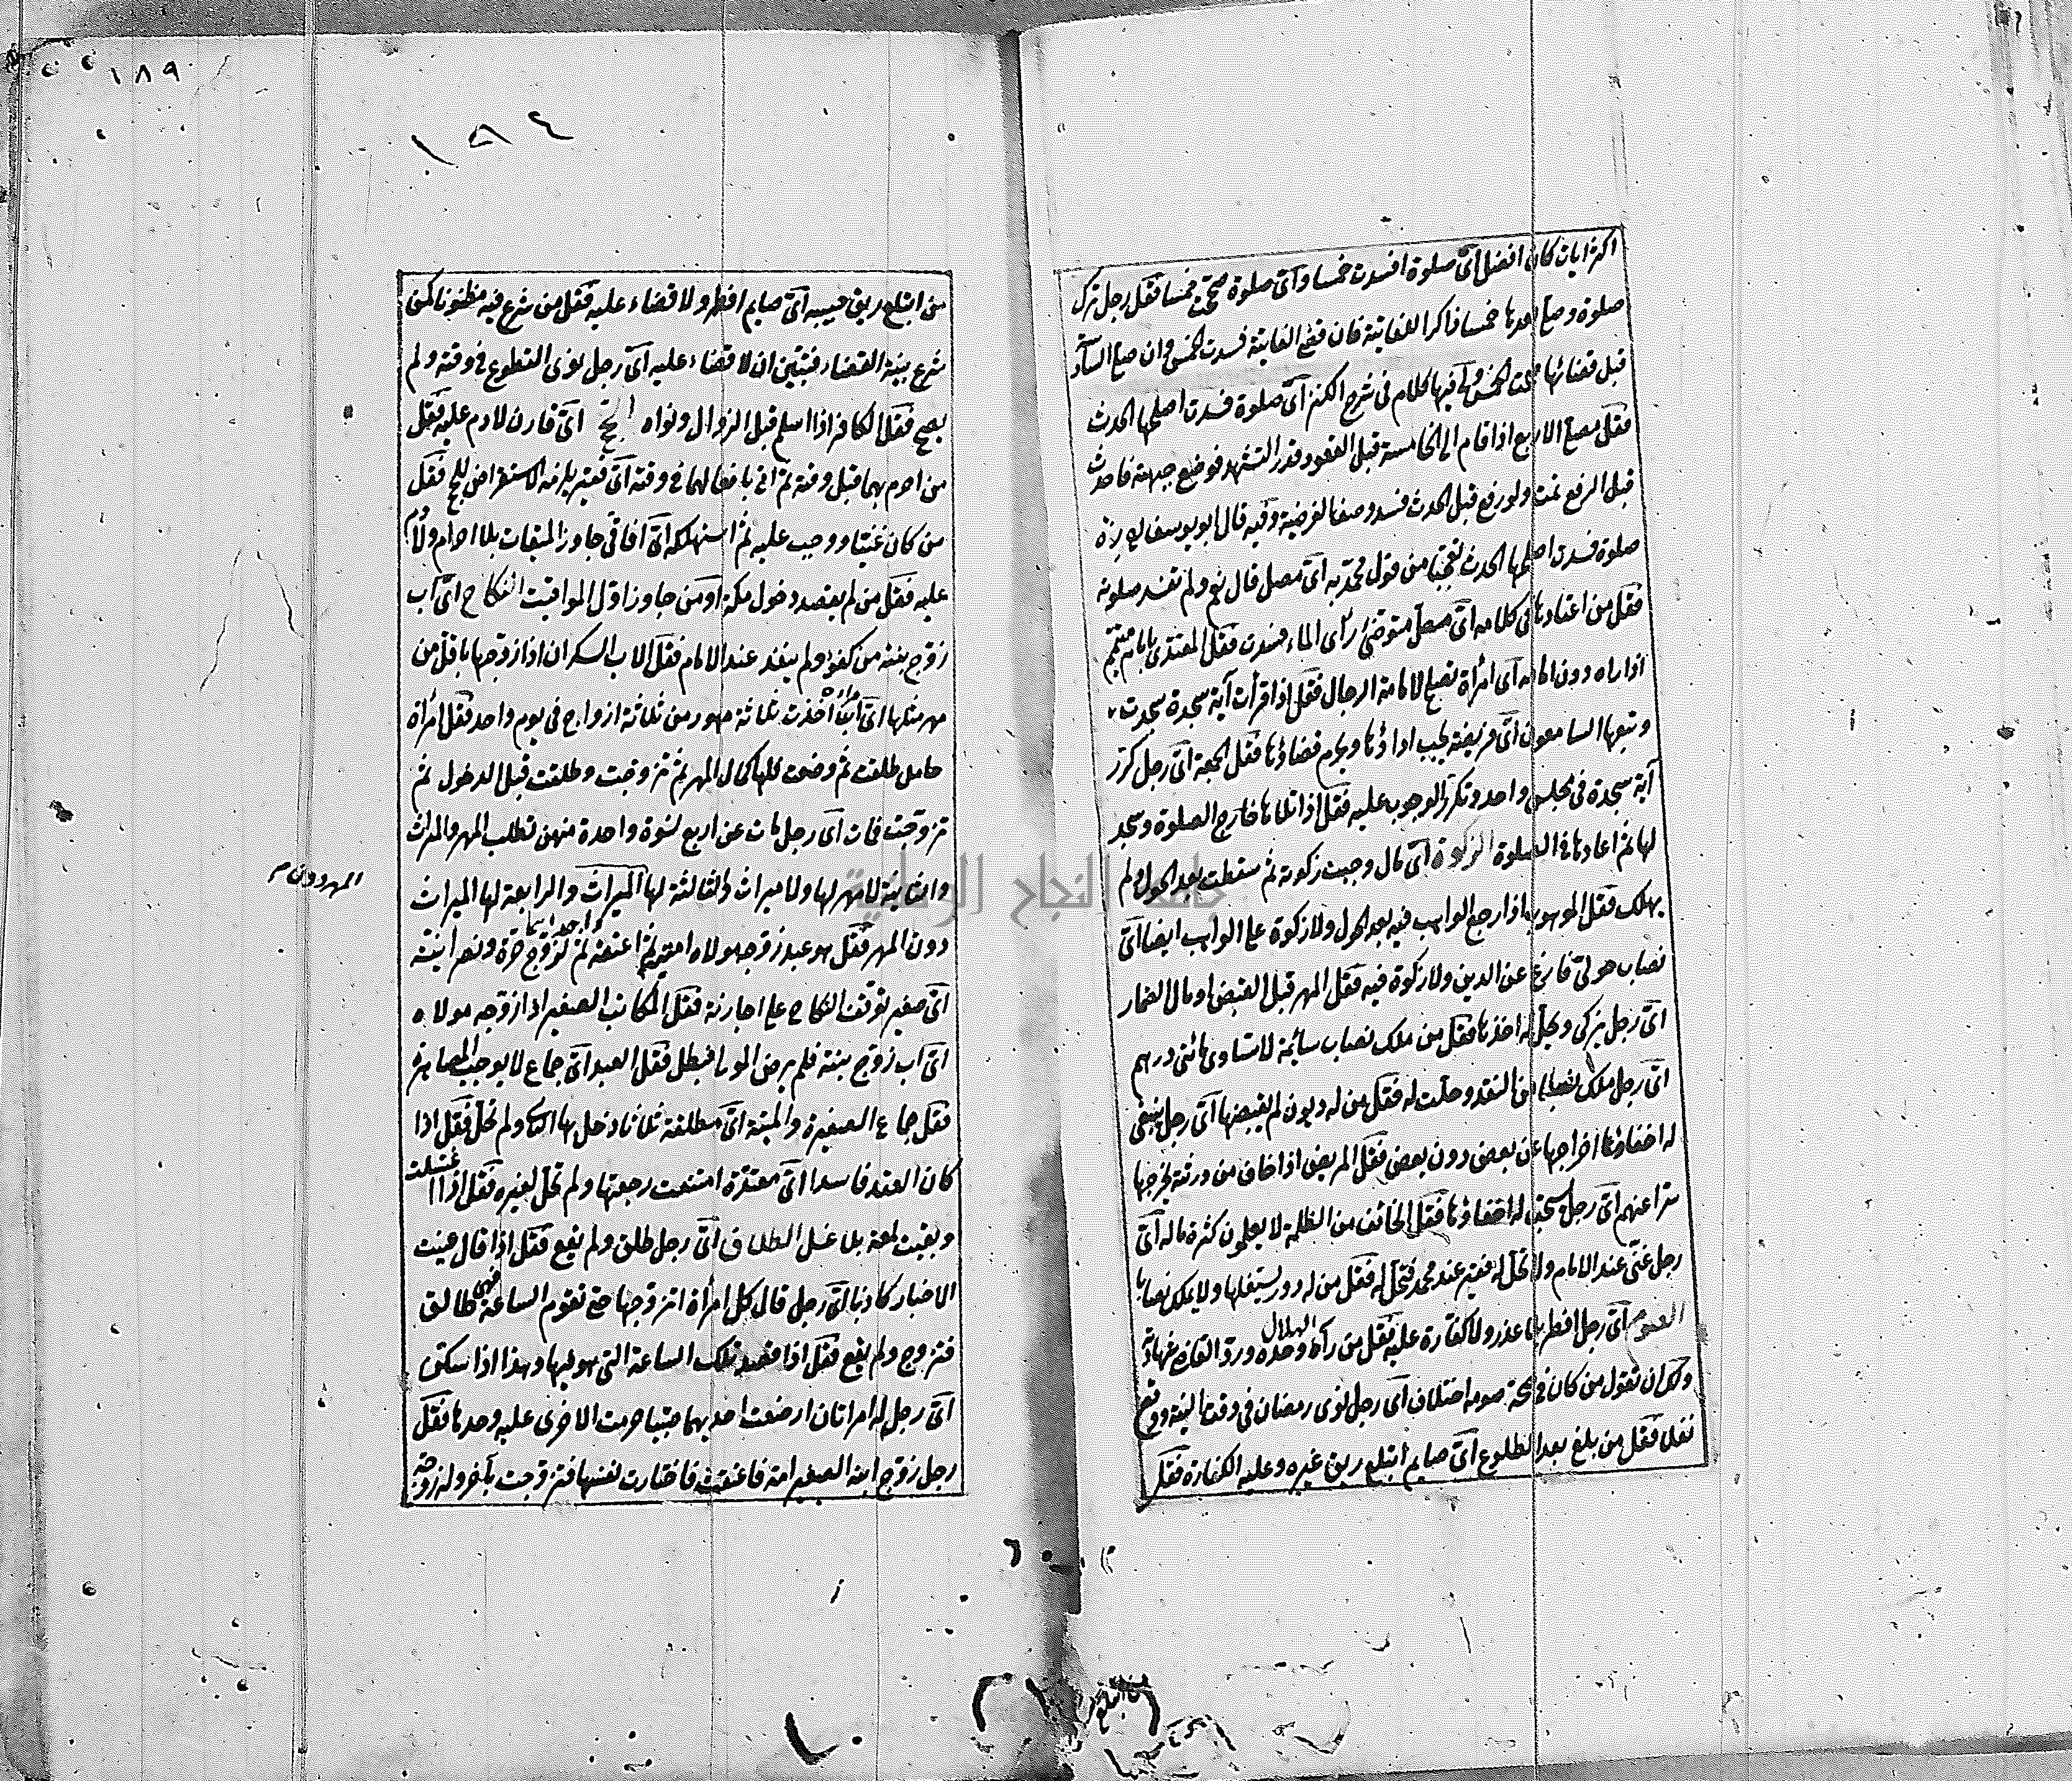 اكثر ايات كان افضل اىّ صلوة افسدت خمسا واىّ صلوة صححت خمسا فقل رجل ترك
صلوة وصلى بعدها خمسا ذاكرا للفايتة فان قضى الفايتة فسدت الخمس وان صلى السادسة
قبل قضائها صحت الخمس ولى فيها كلام فى شرح الكنز اىّ صلوة فسدت اصلحها الحدث
فقل مصلى الاربع اذا قام الى الخامسة قبل القعود قدر التشهد فوضع جبهته فاحدث
قبل الرفع تمت ولو رفع قبل الحدث فسد وصف الفرضية وفيه قال ابو يوسف زه
صلوة فسدت اصلحها الحدث تعجبا من قول محمد به اىّ مصل قال نعم ولم تفسد صلوته
فقل من اعتادها فى كلامه اىّ مصل متوضئ رأى الماء فسدت فقل المقتدى بامام متيمم
اذا راه دون امامه اى امرأة تصلح لامامة الرجال فقل اذا قرأت آية سجدة سجدت
وتبعها السامعون اىّ فريضة يجب اداؤها ويحرم قضاؤها فقل الجمعة اىّ رجل كرر
آية سجدة فى مجلس واحد وتكرر الوجوب عليه فقل اذا تلاها خارج الصلوة وسجد
لها ثم اعادها فى الصلوة الزكوة اىّ مال وجبت زكوته ثم سقطت بعد الحول ولم
يهلك فقل الموهوب اذا رجع الواهب فيه بعد الحول ولا زكوة على الواهب ايضا اىّ
نصاب حولى فارغ عن الدين ولا زكوة فيه فقل المهر قبل القبض او مال الضمار
اىّ رجل يزكى ويحل له اخذها فقل من ملك نصاب سائمة لا تساوى مائتى درهم
اىّ رجل ملك نصابا من النقد وحلت له فقل من له ديون لم يقبضها اىّ رجل ينبغى
له اخفاؤها اخراجها عن بعض دون بعض فقل المريض اذا خاف من ورثته يخرجها
سرا عنهم اىّ رجل يستحب له اخفاؤها فقل الخائف من الظلمة لا يعلمون كثرة ماله اىّ
رجل غنى عند الامام ولا تحل له فقير عند محمد فتحل له فقل من له دور يستغلها ولا يملك نصابا
الصوم اىّ رجل افطر بلا عذر ولا كفارة عليه فقل من رآه وحده ورد القاضى شهادته
الهلال
ولك ان تقول من كان فى صحة صومه اختلاف اى رجل نوى رمضان فى وقت النية ووقع
نفلا فقل من بلغ بعد الطلوع اىّ صايم ابتلع ريق غيره وعليه الكفارة فقل
١٨٩
١٨٤
من ابتلع ريق حبيبه اىّ صايم افطر ولا قضاء عليه فقل من شرع فيه مظنونا كمن
شرع بنية القضاء فتبين ان لا قضاء عليه اىّ رجل نوى التطوع فى وقته ولم
يصح فقل الكافر اذا اسلم قبل الزوال ونواه الحج اىّ قارن لا دم عليه فقل
من احرم بهما قبل وقته ثم اتى بافعالهما فى وقته اىّ فقير يلزمه الاستقراض للحج فقل
من كان غنيا ووجب عليه ثم استهلكه اىّ آفاقى جاوز الميقات بلا احرام ولا دم
عليه فقل من لم يقصد دخول مكة او من جاوز اول المواقيت النكاح اىّ اب
زوج بنته من كفؤ ولم ينفذ عند الامام فقل الاب السكران اذا زوجها باقل من
مهر مثلها اىّ امرأة اخذت ثلاثة مهور من ثلاثة ازواج فى يوم واحد فقل امرأة
حامل طلقت ثم وضعت فلها كمال المهر ثم تزوجت وطلقت قبل الدخول ثم
تزوجت فمات اى رجل مات عن اربع نسوة واحدة منهن تطلب المهر والميراث
والثانية لا مهر لها ولا ميراث والثالثة لها الميراث والرابعة لها الميراث
المهر دون صح
دون المهر فقل هو عبد زوجه مولاه امتيه ثم اعتقه ثم تزوج حرة ونصرانية
اىّ صغير توقف النكاح على اجازته فقل المكاتب الصغير اذا زوجه مولاه
اىّ اب زوج بنته فلم يرض المولى فبطل فقل العبد اىّ جماع لا يوجب المصاهرة
فقل جماع الصغيرة والميتة اىّ مطلقة ثلاثا دخل بها الثانى ولم تحل فقل اذا
كان العقد فاسدا اىّ معتدة امتنعت رجعتها ولم تحل لغيره فقل اذا اغتسلت
وبقيت لمعة بلا غسل الطلاق اىّ رجل طلق ولم يقع فقل اذا قال عنيت
الاخبار كاذبا اىّ رجل قال كل امرأة اتزوجها حتى تقوم الساعة فهى طالق
فتزوج ولم يقع فقل اذا قصد تلك الساعة التى هو فيها وهذا اذا سكت
اىّ رجل له امرأتان ارضعت احديهما صبيا حرمت الاخرى عليه وحدها فقل
رجل زوج ابنه الصغير امة فاعتقت فاختارت نفسها فتزوجت بآخر وله زوجة
جامعة النجاح الوطنية